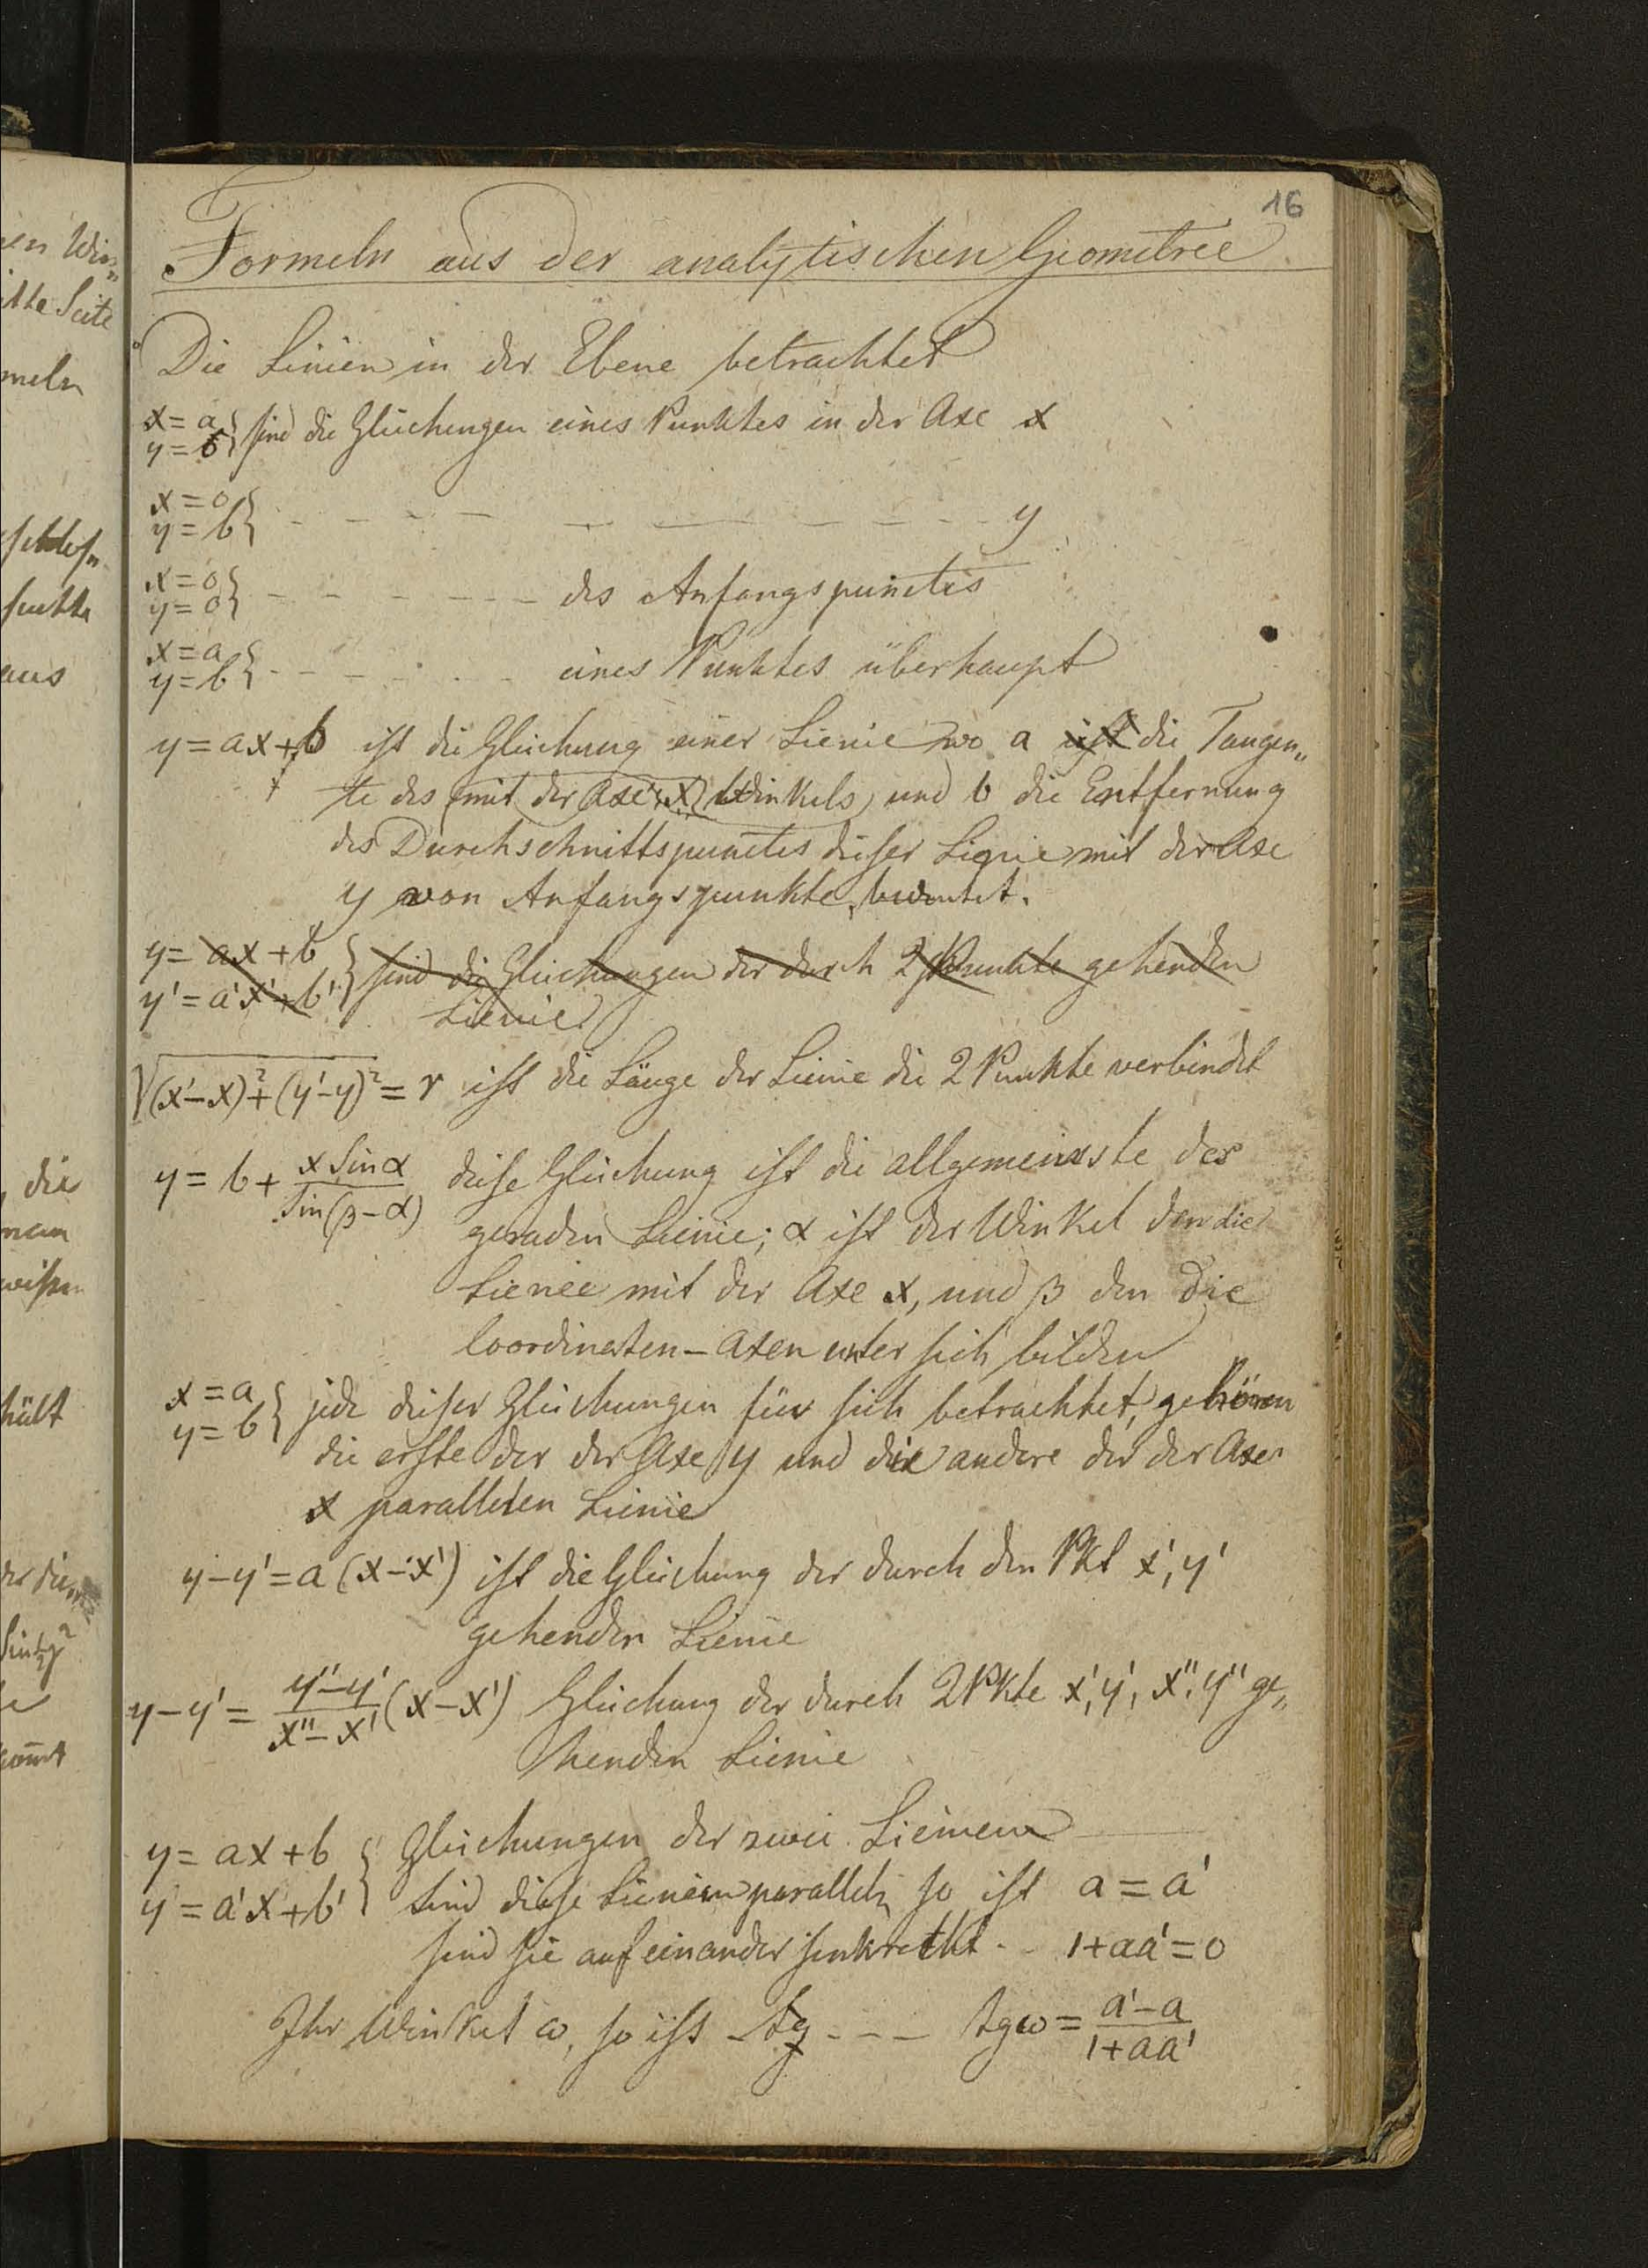 16
Formeln aus der analytischen Geometrie
Die Linien in der Ebene betrachtet
x = a
y = 0 } sind die Gleichungen eines Punktes in der Axe x
x = 0
y = b } - - - - - - - - - - y
x = 0
y = 0 } - - - - - - des Anfangspunctes
x = a
y = b } - - - - - - eines Punktes überhaupt
y = ax + b ist die Gleichung einer Lienie wo a ist die Tangen„
te des mit der Axe x Winkels und b die Entfernung
des Durchschnittspunctes dieser Lienie mit der Axe
y von Anfangspunkte, bedeutet.
y = ax + b
y' = a'x' + b' } sind die Gleichungen der durch 2 Punkte gehenden
Lienie
√(x'-x)² + (y'-y)² = r ist die Länge der Lienie die 2 Punkte verbindet
y = b + x sin α / sin(β - α) diese Gleichung ist die allgemeinste der
geraden Lienie; α ist der Winkel den die
Lienie mit der Axe x, und β den die
Coordinaten - Axen unter sich bilden
x = a
y = b } jede dieser Gleichungen für sich betrachtet, gehören
die erste der der Axe y und die andere der der Axe
x parallelen Lienie
y - y' = a (x - x') ist die Gleichung der durch den Pkt x', y'
gehenden Lienie
y - y' = y'' - y' / x'' - x' (x - x') Gleichung der durch 2 Pkte x', y', x'', y'' ge„
henden Lienie
y = ax + b
y = a'x + b' } Gleichungen der zwei Lienien
Sind diese Lienien parallel, so ist a = a'
sind sie auf einander senkrecht - - 1 + aa' = 0
Ihr Winkel ω, so ist tg - - - tg ω = a' - a / 1 + aa'